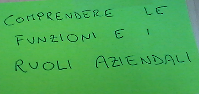 COMPRENDERE LE
FUNZIONI E I
RUOLI AZIENDALI